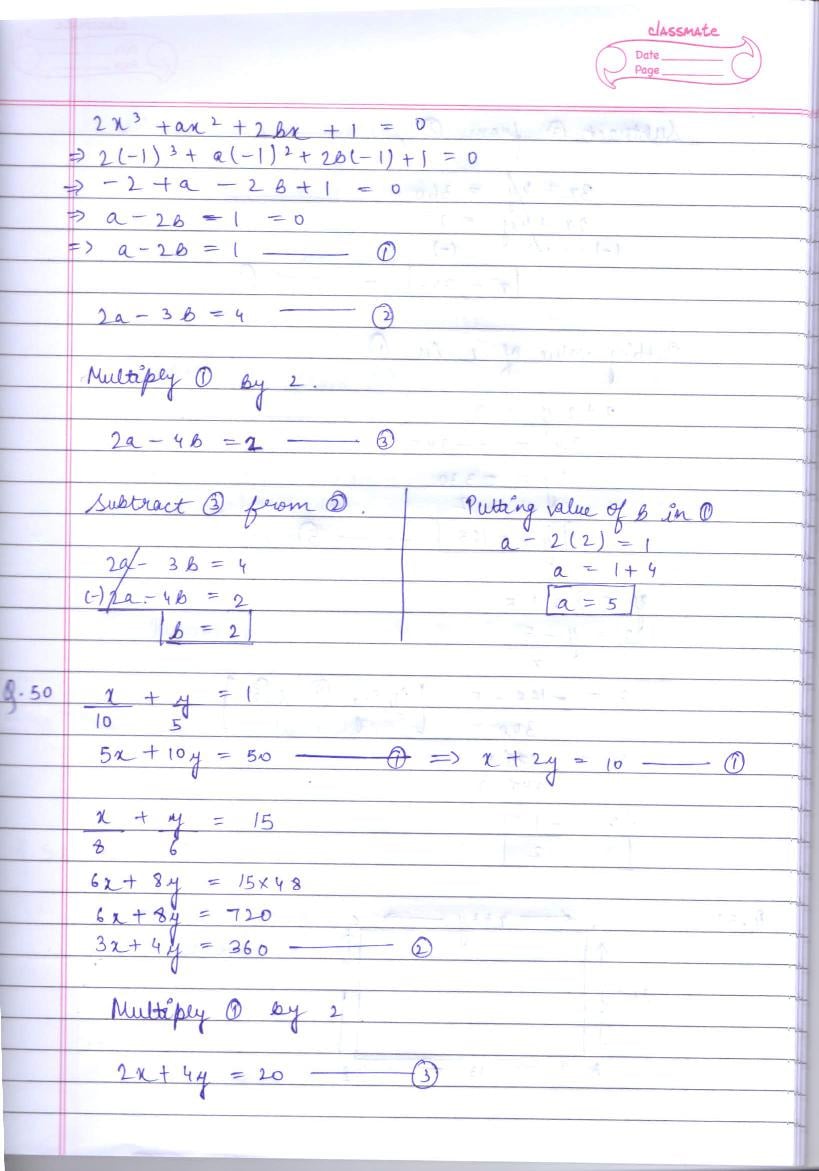 classmate
Date
Page
2x³ + ax² + 2bx + 1 = 0
⇒ 2(-1)³ + a(-1)² + 2b(-1) + 1 = 0
⇒ -2 + a - 2b + 1 = 0
⇒ a - 2b - 1 = 0
=> a - 2b = 1 ——— ①
2a - 3b = 4 ——— ②
Multiply ① by 2.
2a - 4b = 2 ——— ③
Subtract ③ from ②.
2a - 3b = 4
(-) 2a - 4b = 2
b = 2
Putting value of b in ①
a - 2(2) = 1
a = 1 + 4
a = 5
Q.50 x/10 + y/5 = 1
5x + 10y = 50 ——— ⑦ => x + 2y = 10 ——— ①
x/8 + y/6 = 15
6x + 8y = 15×48
6x + 8y = 720
3x + 4y = 360 ——— ②
Multiply ① by 2
2x + 4y = 20 ——— ③